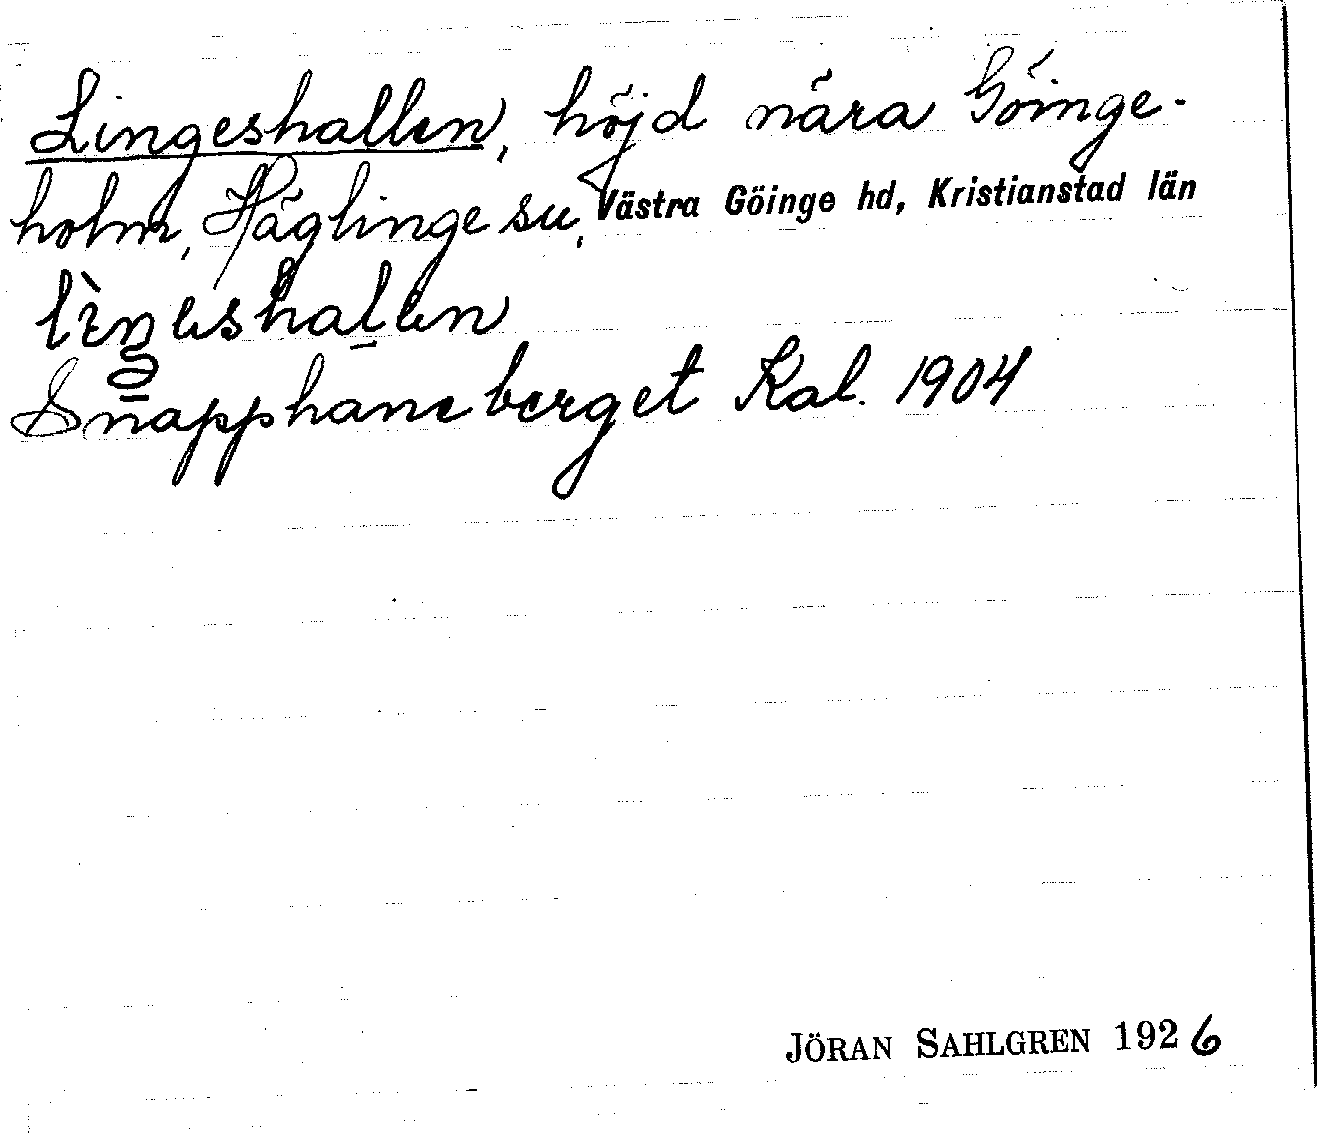 Lingeshallen, höjd nära Göinge-
holm, Häglinge sn, Västra Göinge hd, Kristianstad län
lìngəshalen
Snapphaneberget Kal. 1904
JÖRAN SAHLGREN 1926